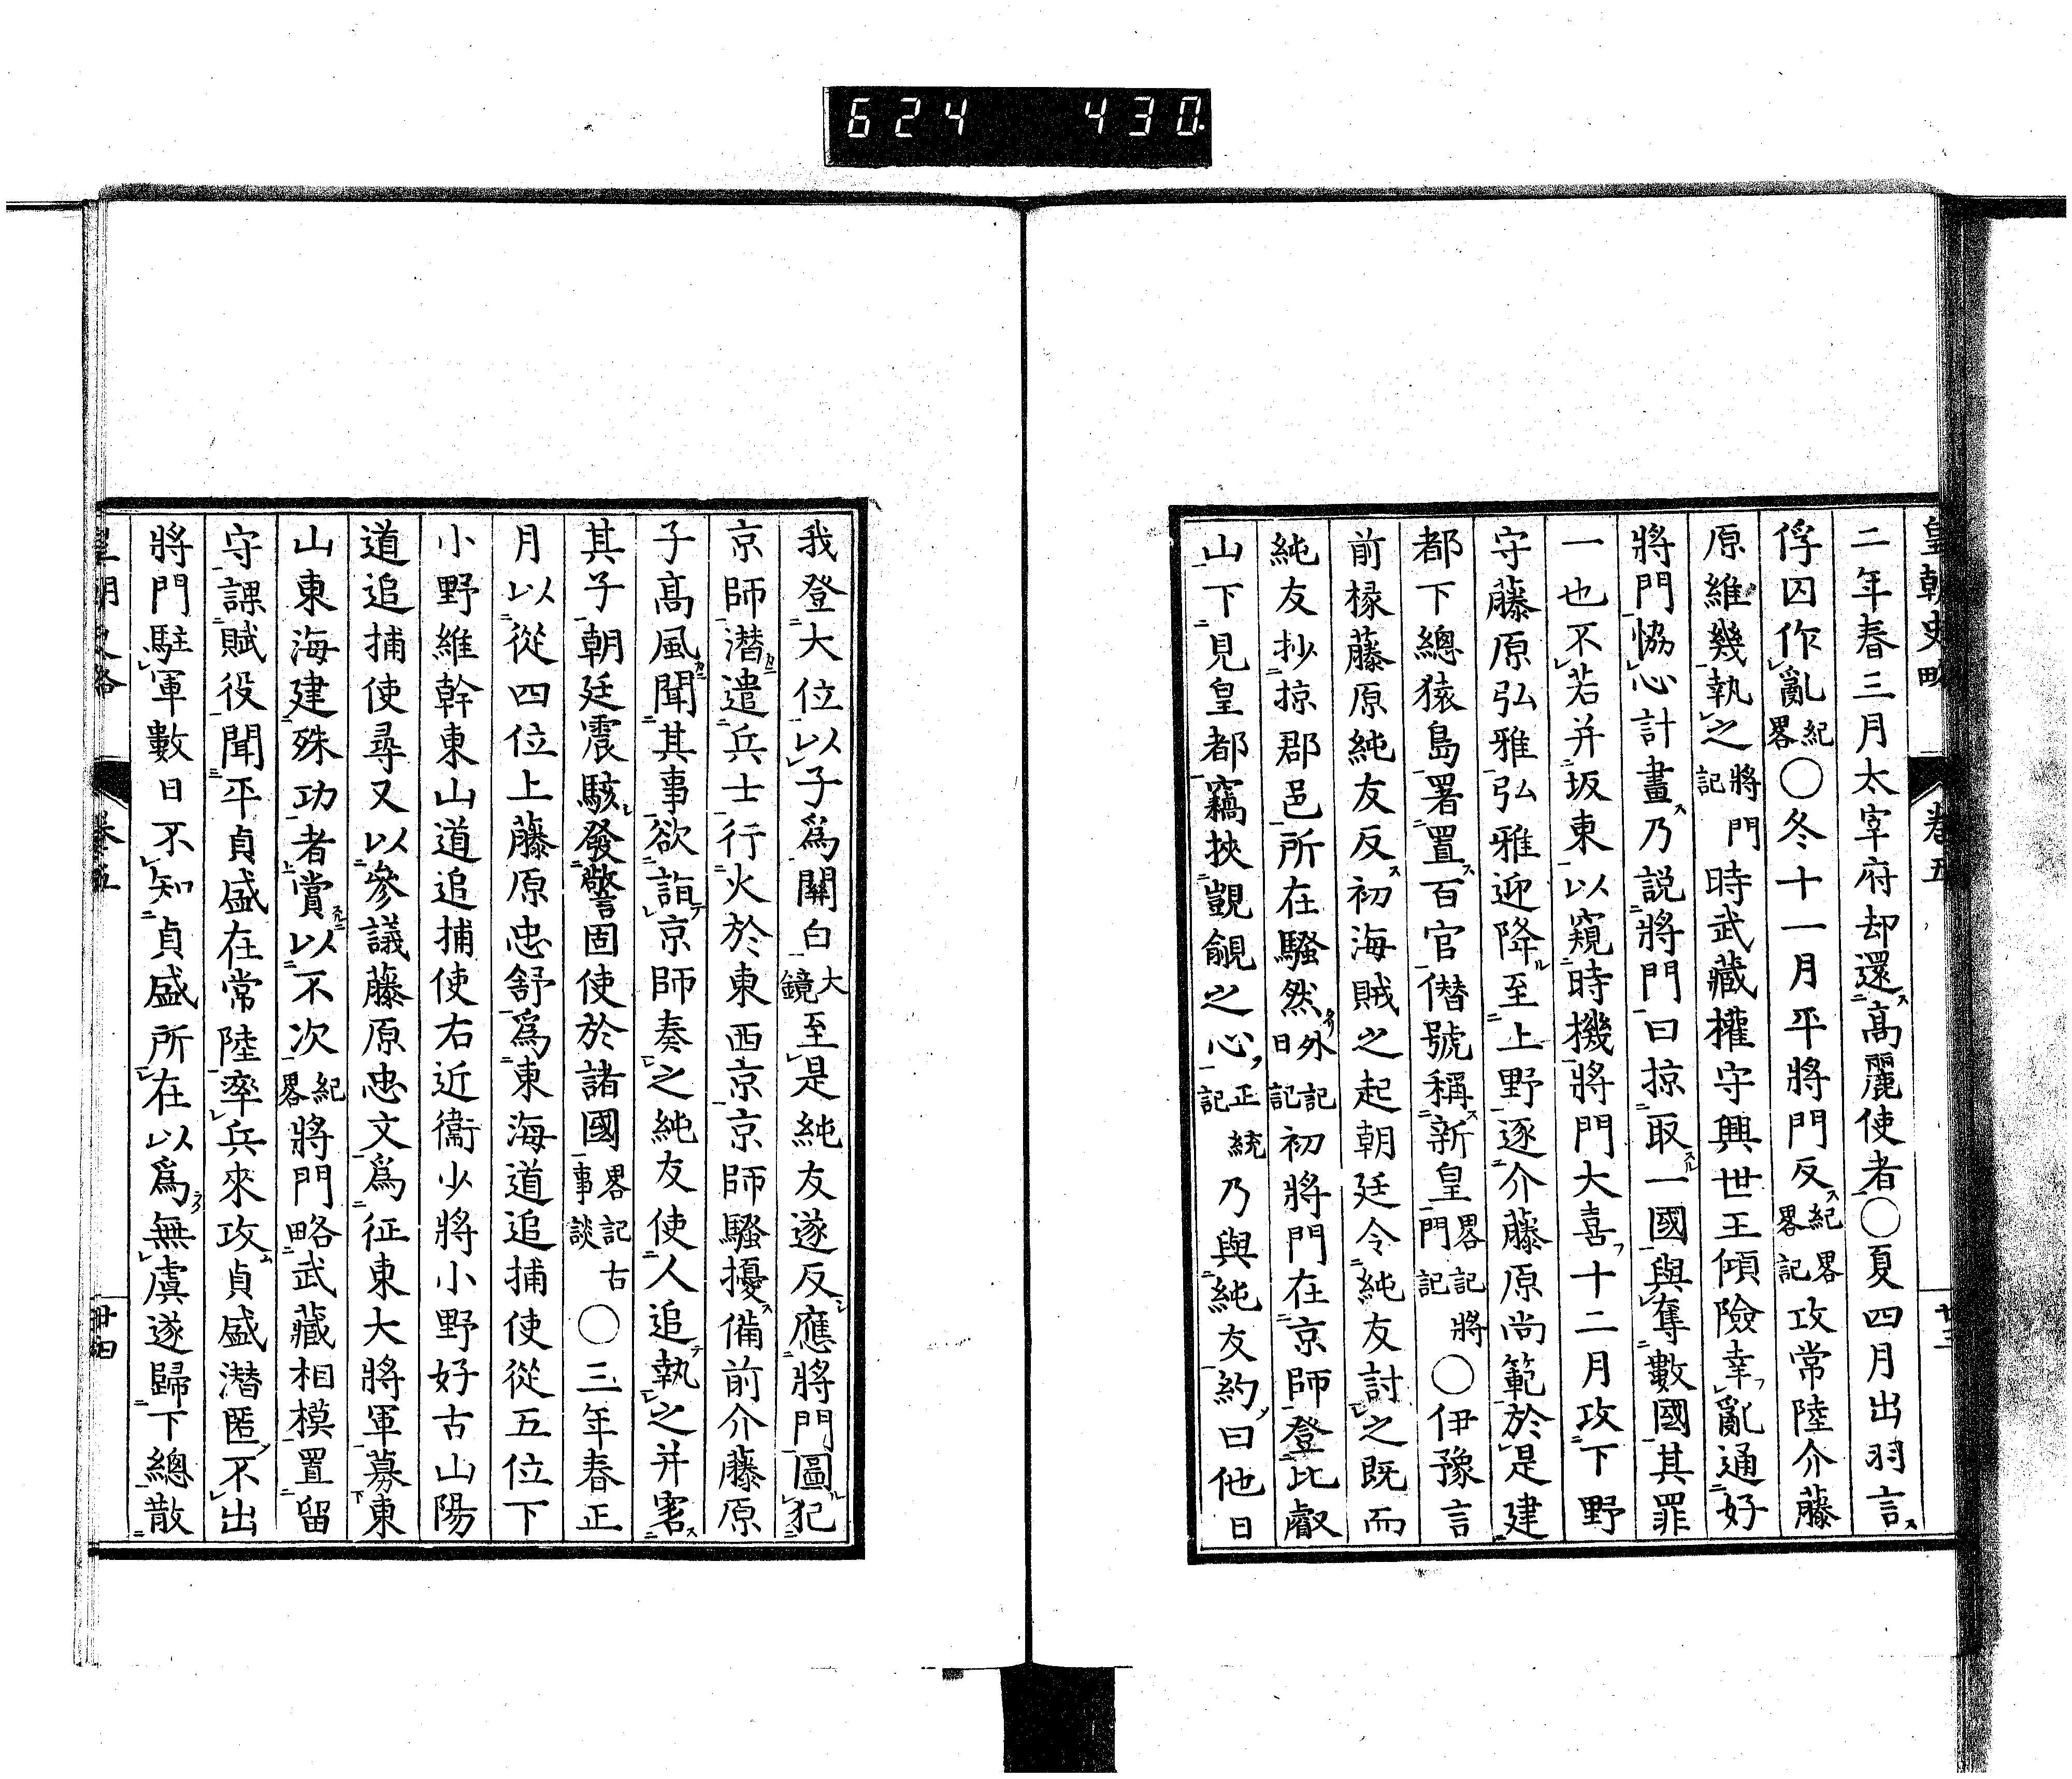 624 430
皇朝史略 卷五 廿三
二年春三月太宰府却還高麗使者○夏四月出羽言
俘囚作亂紀畧○冬十一月平將門反紀畧畧記攻常陸介藤
原維幾執之將門記時武藏權守興世王傾險幸亂通好
將門恊心計畫乃説將門曰掠取一國與奪數國其罪
一也不若并坂東以窺時機將門大喜十二月攻下野
守藤原弘雅弘雅迎降至上野逐介藤原尚範於是建
都下總猿島署置百官僭號稱新皇畧記將門記○伊豫言
前椽藤原純友反初海賊之起朝廷令純友討之既而
純友抄掠郡邑所在騷然外記日記初將門在京師登比叡
山下見皇都竊挾覬覦之心正統記乃與純友約曰他日
我登大位以子爲關白大鏡至是純友遂反應將門圖犯
京師潜遣兵士行火於東西京京師騷擾備前介藤原
子高風聞其事欲詣京師奏之純友使人追執之并害
其子朝廷震駭發警固使於諸國畧記古事談○三年春正
月以從四位上藤原忠舒爲東海道追捕使從五位下
小野維幹東山道追捕使右近衞少將小野好古山陽
道追捕使尋又以參議藤原忠文爲征東大將軍募東
山東海建殊功者賞以不次紀畧將門略武藏相模置留
守課賦役聞平貞盛在常陸率兵來攻貞盛潜匿不出
將門駐軍數日不知貞盛所在以爲無虞遂歸下總散
皇朝史略 卷五 廿四